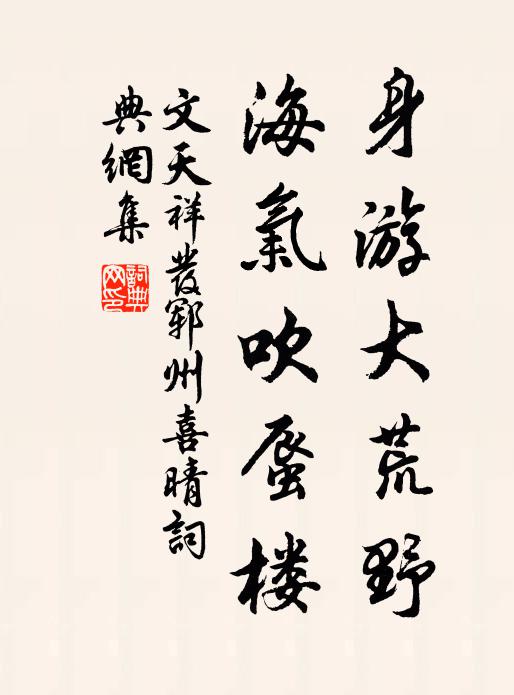 身游大荒野
海氣吹蜃楼
文天祥發鄆州喜晴詞
典網集
詞典
网印